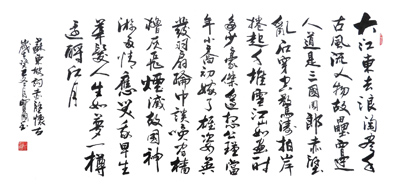 大江東去浪淘盡千
古風流人物故壘西邊
人道是三國周郎赤壁
亂石穿空驚濤拍岸
捲起千堆雪江山如畫一時
多少豪傑遥想公瑾當
年小喬初嫁了雄姿英
發羽扇綸巾談笑間檣
櫓灰飛煙滅故國神
遊多情應笑我早生
華髮人生如夢一樽
還酹江月
蘇東坡詞赤壁懷古